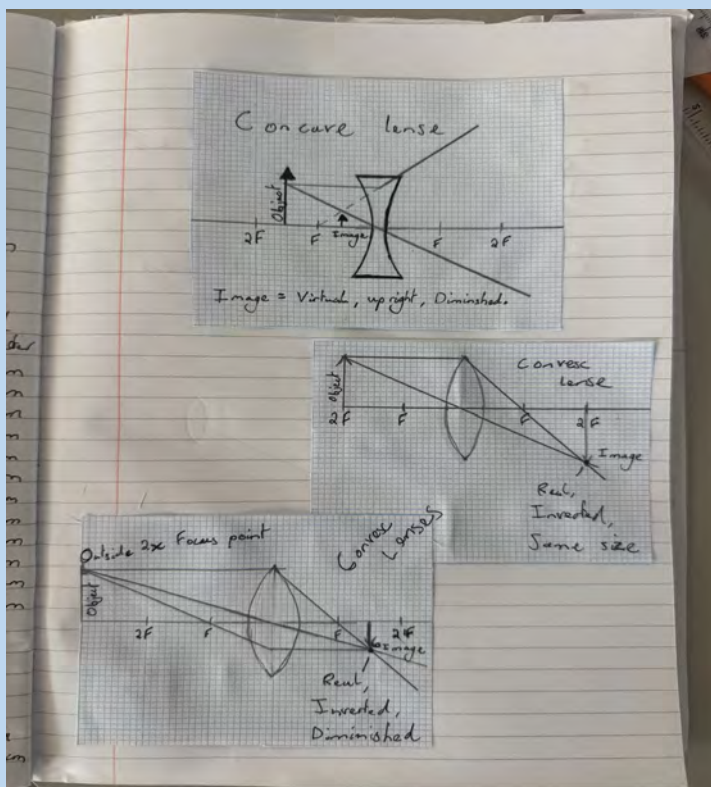 Concave lense
Object
2F
F
Image
F
2F
Image = Virtual, upright, Diminshed.
Convex
lense
Object
2F
F
F
2F
Image
Real,
Inverted,
Same size
Outside 2x Focus point
Convex
Lenses
Object
2F
F
F
2F
Image
Real,
Inverted,
Diminished
m
m
m
m
m
m
m
m
m
cm